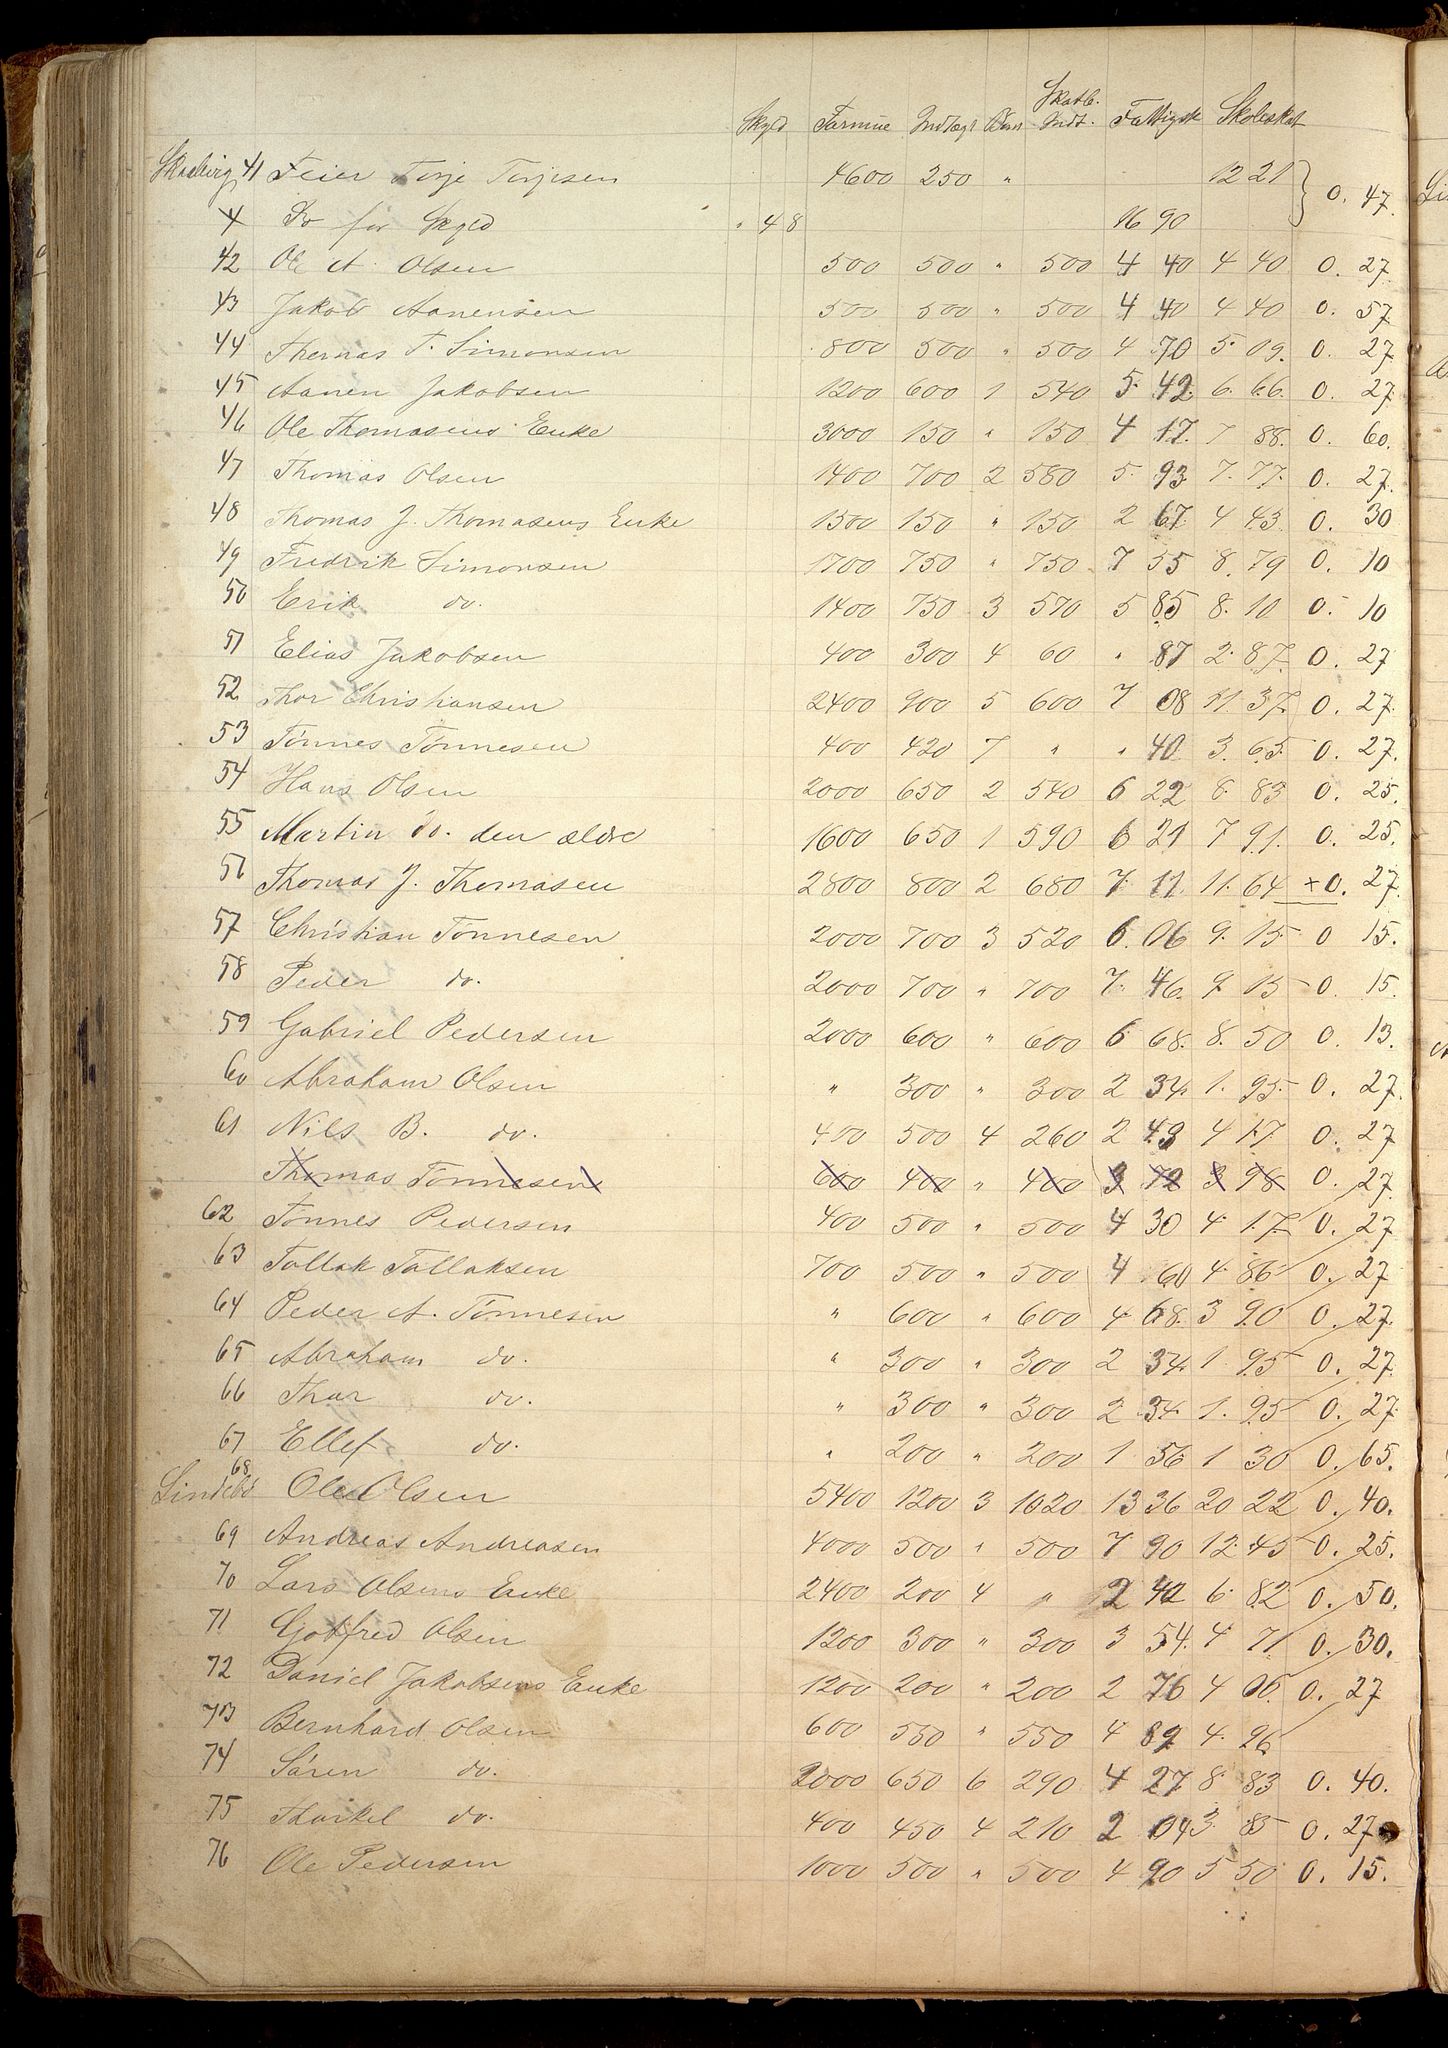 Skyld Formue Indtægt Børn Skatb. Indt. Fattigsk Skoleskat
Skaalevig 41 Feier Torje Torjesen 4600 250 " 12 21 } 0. 47.
4 Do for Skyld " 48 16 90
42 Ole A. Olsen 500 500 " 500 4 40 4 40 0. 27
43 Jakob Aanensen 500 500 " 500 4 40 4 40 0. 57.
44 Thomas T. Simonsen 800 500 " 500 4 70 5. 09. 0. 27
45 Aanen Jakobsen 1200 600 1 540 5. 42. 6. 66. 0. 27
46 Ole Thomasens Enke 3000 150 " 150 4 17. 7 88. 0. 60.
47 Thomas Olsen 1400 700 2 580 5. 93. 7. 77. 0. 27.
48 Thomas J. Thomasens Enke 1500 150 " 150 2 67. 4 43. 0. 30
49 Fredrik Simonsen 1700 750 " 750 7 55 8. 79 0. 10
50 Erik do. 1400 750 3 570 5 85 8. 10 0. 10
51 Elias Jakobsen 400 300 4 60 " 87 2. 87. 0. 27
52 Thor Christiansen 2400 900 5 600 7 08 11. 37. 0. 27.
53 Tönnes Tönnesen 400 420 7 " " 40 3. 65. 0. 27.
54 Hans Olsen 2000 650 2 540 6 22 8. 83 0. 25.
55 Martin do. den ældre 1600 650 1 590 6 21 7 91. 0. 25.
56 Thomas J. Thomasen 2800 800 2 680 7. 11. 11. 64 + 0. 27.
57 Christian Tönnesen 2000 700 3 520 6. 06 9. 15 0 15.
58 Peder do. 2000 700 " 700 7. 46. 9. 15 0. 15.
59 Gabriel Pedersen 2000 600 " 600 6 68. 8. 50 0. 13.
60 Abraham Olsen " 300 " 300 2 34. 1. 95. 0. 27.
61 Nils B. do. 400 500 4 260 2 43 4 17. 0. 27
Thomas Tönnesen 600 400 " 400 3 72 3 98 0. 27.
62 Tönnes Pedersen 400 500 " 500 4 30 4. 17. 0. 27
63 Tallak Tallaksen 700 500 " 500 4 60 4. 86 0. 27
64 Peder A. Tönnesen " 600 " 600 4. 68. 3 90 0. 27.
65 Abraham do. " 300 " 300 2 34. 1. 95 0. 27.
66 Thor do. " 300 " 300 2. 34. 1. 95 0. 27.
67 Ellef do. " 200 " 200 1. 56 1 30 0. 65.
Lindebö 68 Ole Olsen 5400 1200 3 1020 13 36 20 22 0. 40.
69 Andreas Andreasen 4000 500 " 500 7 90 12. 45 0. 25.
70 Lars Olsens Enke 2400 200 4 " 2 42 6. 82 0. 50.
71 Gotfred Olsen 1200 300 " 300 3 54. 4 71 0. 30.
72 Daniel Jakobsens Enke 1200 200 " 200 2 76 4 06. 0. 27
73 Bernhard Olsen 600 550 " 550 4 82 4. 96
74 Sören do. 2000 650 6 290 4 27. 8. 83 0. 40.
75 Thorkel do. 400 450 4 210 2 04 3. 85 0. 27
76 Ole Pedersen 1000 500 " 500 4 90 5 50 0. 15.